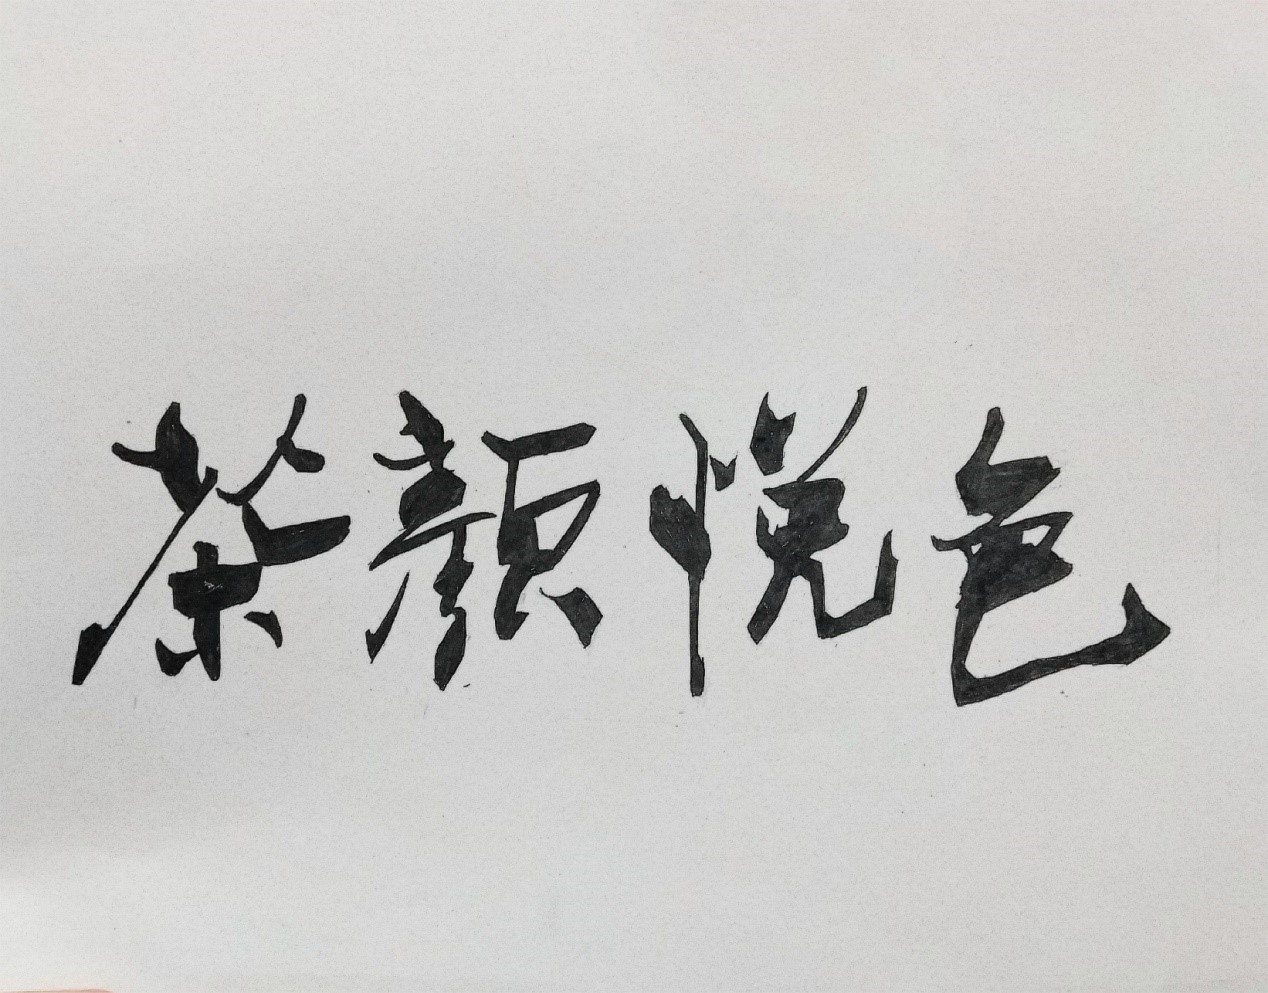 茶颜悦色